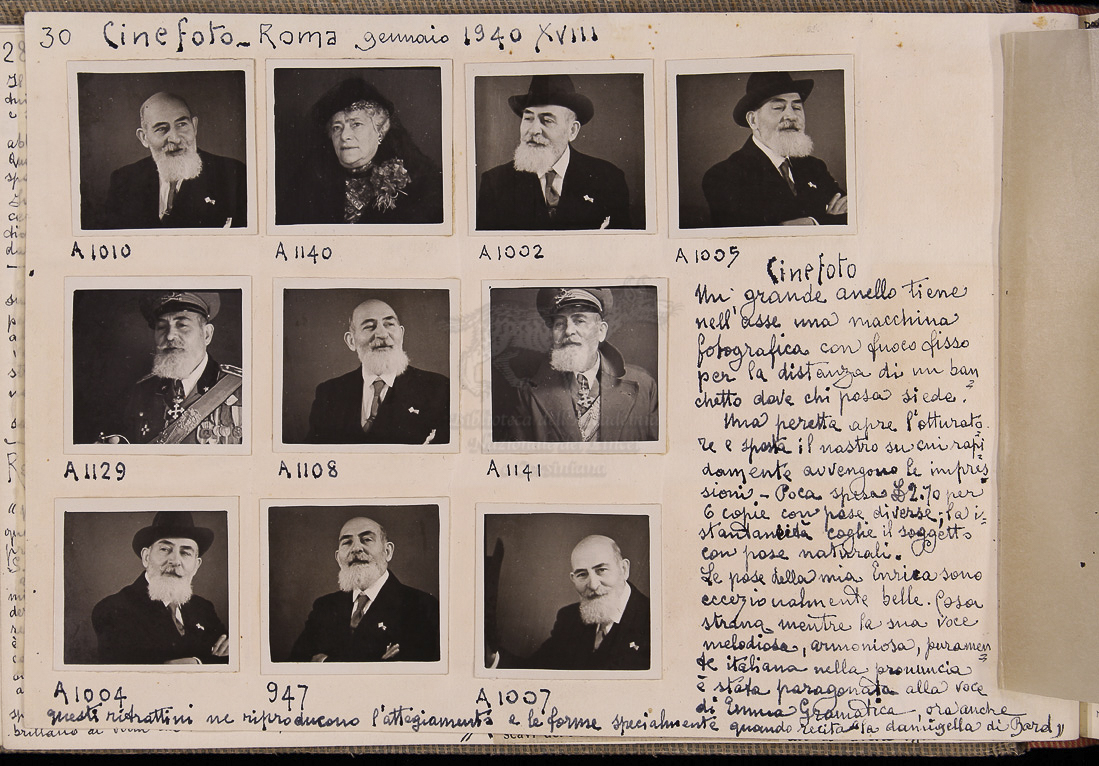 30 Cinefoto - Roma gennaio 1940 XVIII
A1010
A1140
A1002
A1005
A1129
A1108
A1141
A1004
947
A1007
Cinefoto
Un grande anello tiene
nell'asse una macchina
fotografica con fuoco fisso
per la distanza di un ban=
chetto dove chi posa siede.
Una peretta apre l'otturato
re e sposta il nastro su cui rapi
damente avvengono le impres
sioni - Poca spesa £ 2.70 per
6 copie con pose diverse; la i=
stantaneità coglie il soggetto
con pose naturali.
Le pose della mia Enrica sono
eccezionalmente belle. Cosa
strana mentre la sua voce
melodiosa, armoniosa, puramen=
te italiana nella pronuncia
è stata paragonata alla voce
di Emma Gramatica, ora anche
questi ritrattini ne riproducono l'attegiamento e le forme specialmente quando recita "la damigella di Bard"